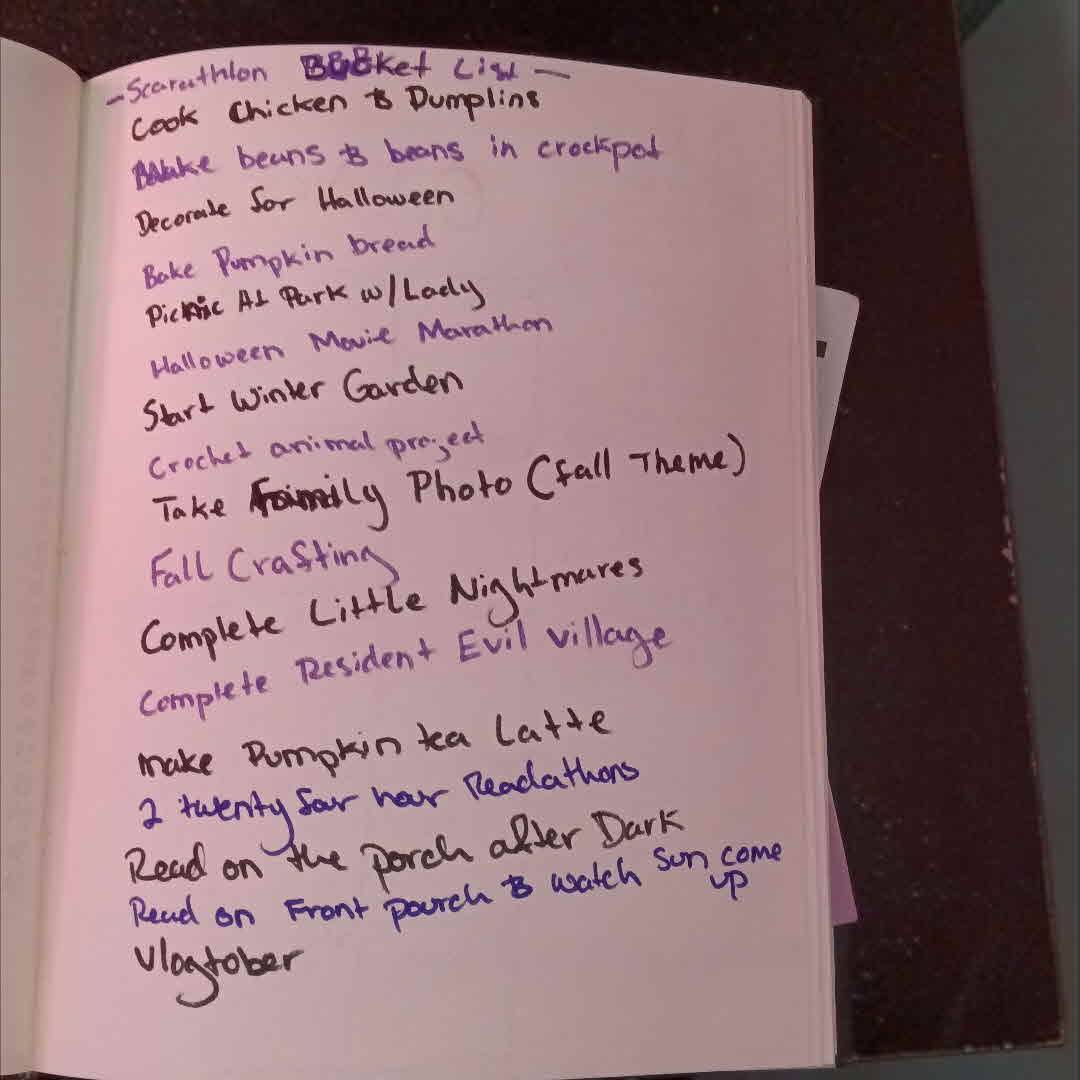 - Scarathlon Bucket List -
Cook Chicken & Dumplins
Make beans & beans in crockpot
Decorate for Halloween
Bake Pumpkin bread
Picnic At Park w/Lady
Halloween Movie Marathon
Start Winter Garden
Crochet animal project
Take Family Photo (fall Theme)
Fall Crafting
Complete Little Nightmares
Complete Resident Evil village
make Pumpkin tea Latte
2 twenty four hour Readathons
Read on the porch after Dark
Read on Front pourch & watch Sun come
up
Vlogtober